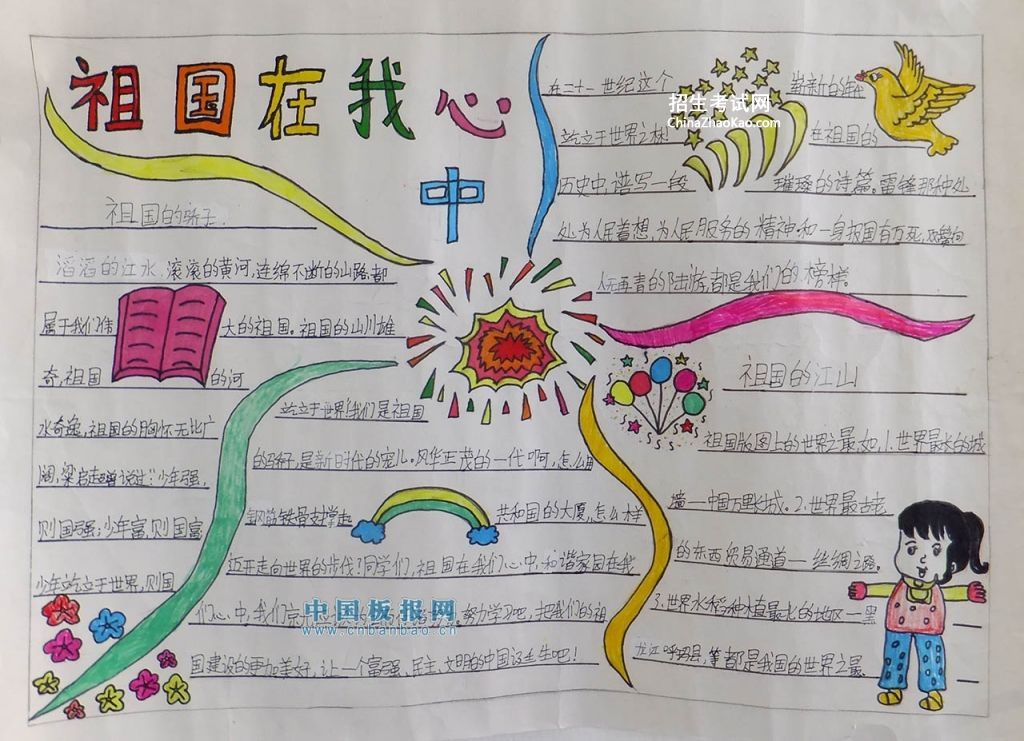 祖国在我心中
祖国的骄子
滔滔的江水,滚滚的黄河,连绵不断的山路,都
属于我们伟大的祖国。祖国的山川雄
奇,祖国的河
水奇逸,祖国的胸怀无比广
阔,梁启超曾说过:“少年强,
则国强;少年富,则国富
少年站立于世界,则国
站立于世界!我们是祖国
的骄子,是新时代的宠儿。风华正茂的一代啊,怎么用
钢筋铁骨支撑起共和国的大厦,怎么样
迈开走向世界的步伐?同学们,祖国在我们心中,和谐家园在我
们心中,我们
努力学习吧,把我们的祖
国建设的更加美好,让一个富强、民主、文明的中国诞生吧!
在二十一世纪这个崭新的年代
站立于世界之林!在祖国的
历史中,谱写一段璀璨的诗篇。雷锋那种处
处为人民着想,为人民服务的精神和一身报国有万死,双鬓向
人无再青的陆游,都是我们的榜样。
祖国的江山
祖国版图上的世界之最,如,1.世界最长的城
墙一中国万里长城。2.世界最古老
的东西贸易通道一丝绸之路。
3.世界水稻种植最北的地区一黑
龙江呼玛县,等都是我国的世界之最。
招生考试网
ChinaZhaoKao.com
中国板报网
www.cnbanbao.cn